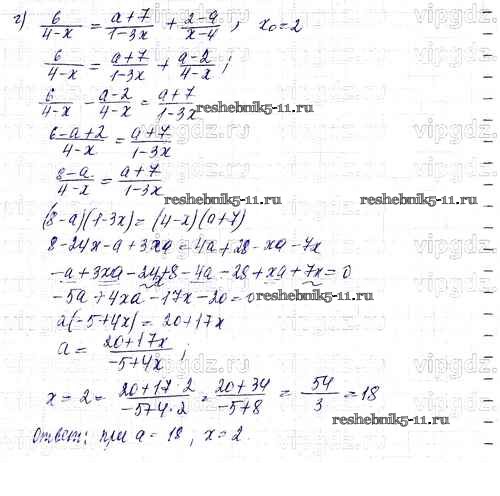 г) 6/(4-x) = (a+7)/(1-3x) + (2-a)/(x-4) ; x₀=2
6/(4-x) = (a+7)/(1-3x) + (a-2)/(4-x) ;
6/(4-x) - (a-2)/(4-x) = (a+7)/(1-3x)
reshebnik5-11.ru
(6-a+2)/(4-x) = (a+7)/(1-3x)
reshebnik5-11.ru
(8-a)/(4-x) = (a+7)/(1-3x)
reshebnik5-11.ru
(8-a)(1-3x) = (4-x)(a+7)
8-24x-a+3xa = 4a+28-xa-7x
-a+3xa-24x+8-4a-28+xa+7x=0
-5a+4xa-17x-20=0
reshebnik5-11.ru
a(-5+4x) = 20+17x
a = (20+17x)/(-5+4x) ;
reshebnik5-11.ru
x = 2 = (20+17·2)/(-5+4·2) = (20+34)/(-5+8) = 54/3 = 18
reshebnik5-11.ru
Ответ: при a = 18 ; x=2.
vipgdz.ru